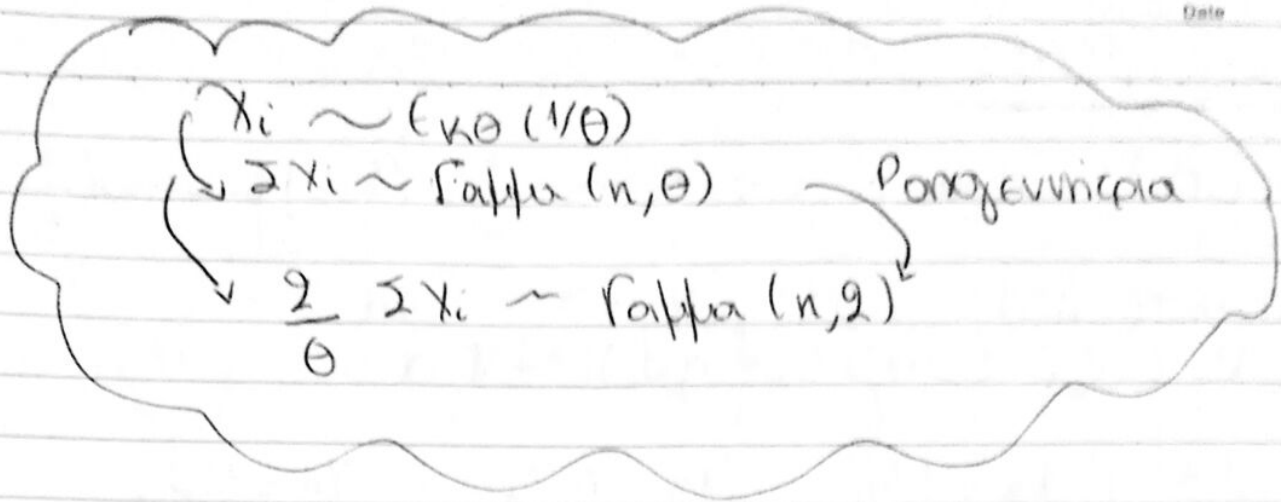 Date
Xi ~ Εκθ (1/θ)
ΣXi ~ Γάμμα (n,θ) Ροπογεννήτρια
2/θ ΣXi ~ Γάμμα (n,2)